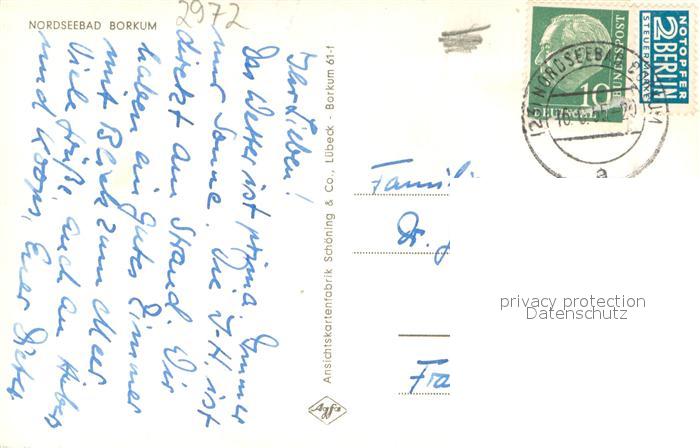 NORDSEEBAD BORKUM
2972
Ihr Lieben!
Das Wetter ist prima. Immer
nur Sonne. Die J-H. ist
direkt am Strand. Wir
haben ein gutes Zimmer
mit Blick zum Meer
Viele Grüße auch an
und Koops, Euer Dieter
Ansichtskartenfabrik Schöning & Co., Lübeck - Borkum 61-f
Agfa
DEUTSCHE BUNDESPOST
10
NOTOPFER
2 BERLIN
STEUERMARKE
NORDSEEBAD BORKUM
a
Famili
Dr.
Fra
privacy protection
Datenschutz